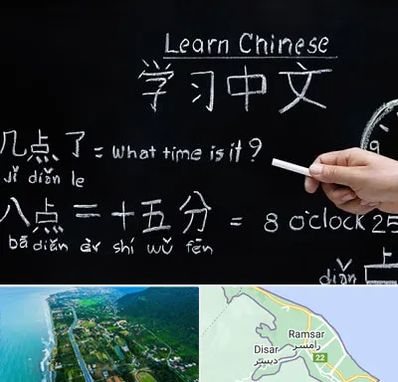 Learn Chinese
学习中文
几点了 = What time is it?
jǐ diǎn le
八点二十五分 = 8 o'clock 25
bā diǎn èr shí wǔ fēn
9
上
diǎn
Ramsar
رامسر
Disar
دیسر
22